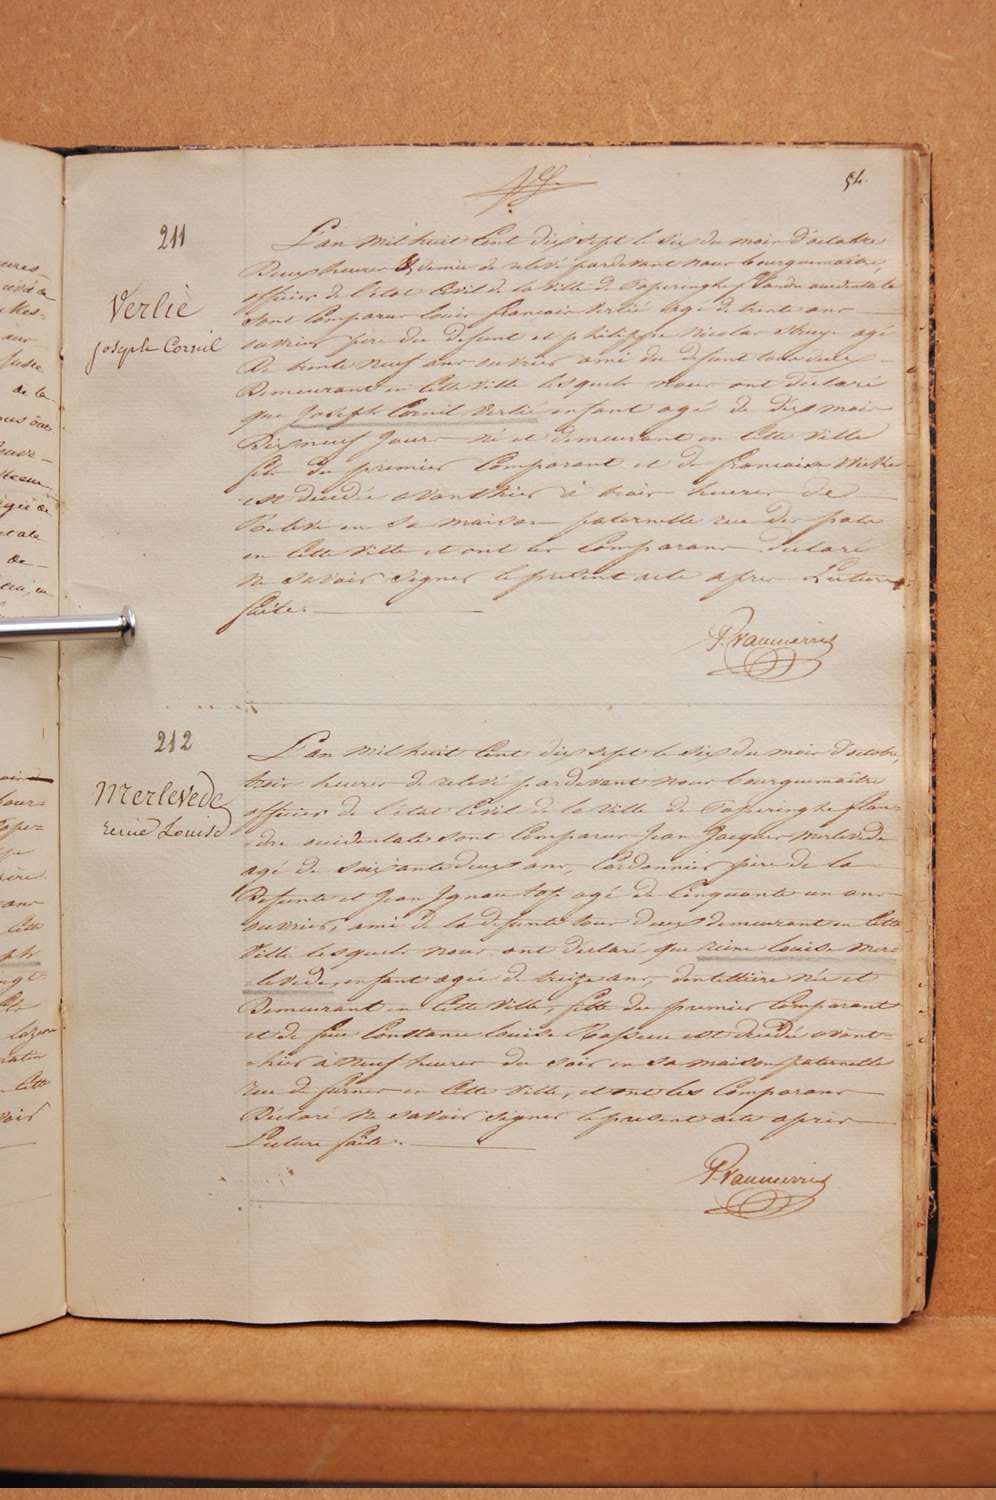 54.
211
Verlié
Joseph Cornil
L'an mil huit Cent dix sept le six du mois d'octobre
Deux heures & demie de relevé pardevant nous bourguemaître,
officier de l'état Civil de la Ville de Poperinghe flandre occidentale
sont Comparus Louis francois Verlié agé de trente ans
ouvrier père du defunt et philippe nicolas Struye agé
De trente neuf ans ouvrier ami du defunt tous deux
Demeurant en Cette Ville lesquels nous ont Déclaré
que Joseph Cornil Verlié enfant agé de dix mois
Dix neuf Jours né et demeurant en Cette Ville
fils du premier Comparant et de francoise
est decedée avanthier à trois heures de
Relevé en sa maison paternelle rue des pots
en Cette Ville et ont les Comparans Declaré
Ne savoir signer le present acte apres Lecture
faite.
212
Merlevede
reine Louise
L'an mil huit Cent dix sept le six du mois d'octobre,
trois heures de relevé pardevant nous bourguemaître
officier de l'état Civil de la Ville de Poperinghe flan=
=dre occidentale sont Comparus Jean Jacques merlevede
agé de soixante deux ans, Cordonnier père de la
Defunte et Jean Ignace agé de Cinquante un ans
ouvrier, ami de la defunte tous deux demeurant en Cette
Ville lesquels nous ont declaré que reine Louise mer=
=levede, enfant agée de treize ans, dentellière née et
Demeurant en Cette Ville, fille du premier Comparant
et de feue Constance Louise est decedée avant=
=hier à Neuf heures du soir en sa maison paternelle
rue de furnes en Cette Ville, et ont les Comparans
Déclaré Ne savoir signer le present acte après
Lecture faite.